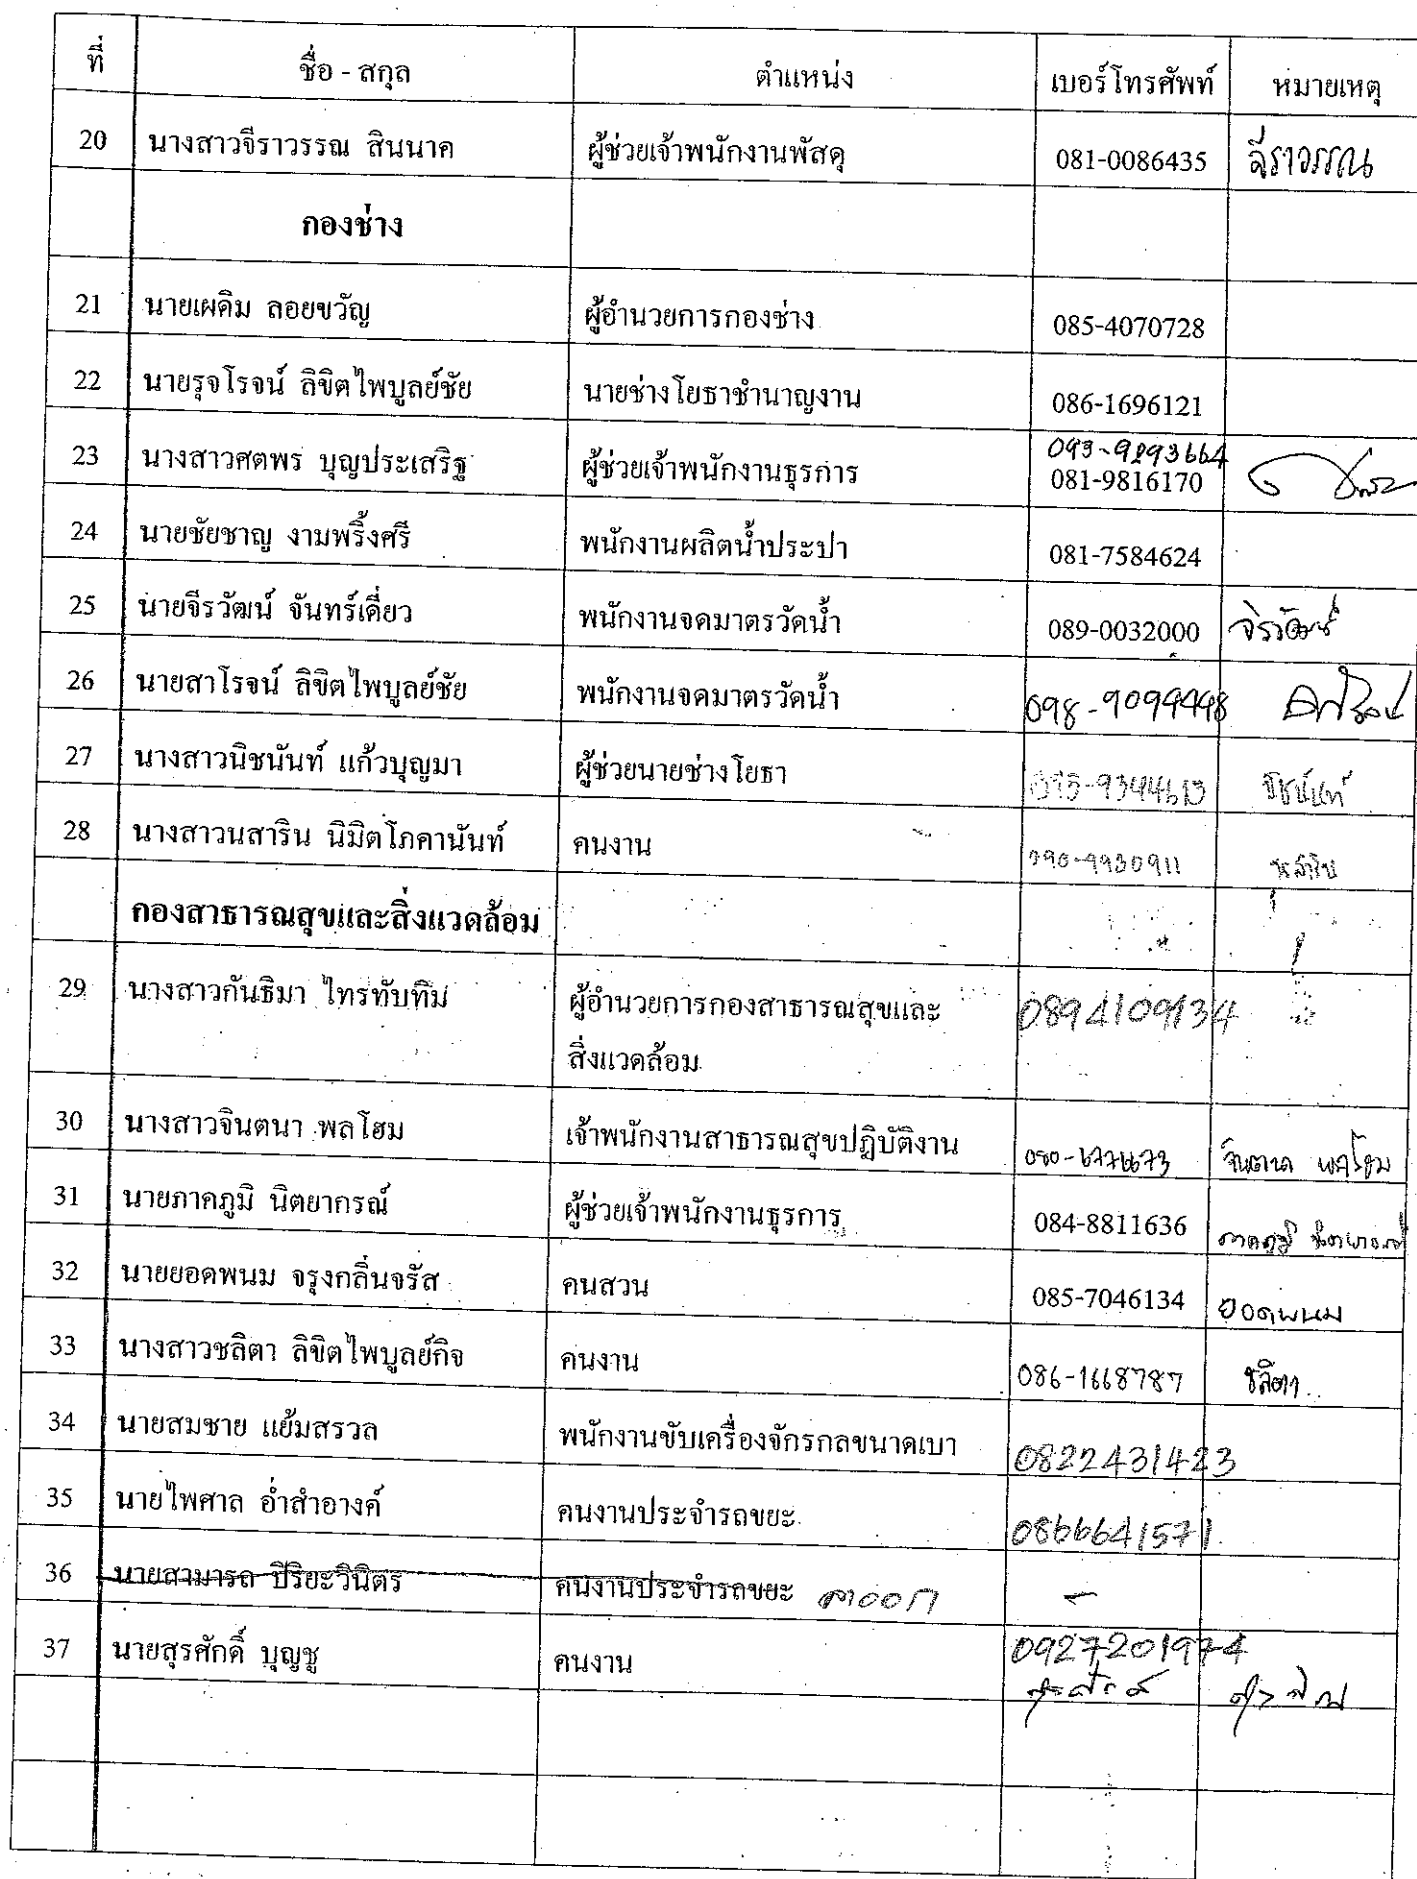 ที่ ชื่อ - สกุล ตำแหน่ง เบอร์โทรศัพท์ หมายเหตุ
20 นางสาวจีราวรรณ สินนาค ผู้ช่วยเจ้าพนักงานพัสดุ 081-0086435 จีราวรรณ
กองช่าง
21 นายเผดิม ลอยขวัญ ผู้อำนวยการกองช่าง 085-4070728
22 นายรุจโรจน์ ลิขิตไพบูลย์ชัย นายช่างโยธาชำนาญงาน 086-1696121
093-9293664
23 นางสาวศตพร บุญประเสริฐ ผู้ช่วยเจ้าพนักงานธุรการ 081-9816170
24 นายชัยชาญ งามพริ้งศรี พนักงานผลิตน้ำประปา 081-7584624
25 นายจีรวัฒน์ จันทร์เดี่ยว พนักงานจดมาตรวัดน้ำ 089-0032000 จิรวัฒน์
26 นายสาโรจน์ ลิขิตไพบูลย์ชัย พนักงานจดมาตรวัดน้ำ
27 นางสาวนิชนันท์ แก้วบุญมา ผู้ช่วยนายช่างโยธา นิชนันท์
28 นางสาวนสาริน นิมิตโภคานันท์ คนงาน 090-9930911
กองสาธารณสุขและสิ่งแวดล้อม
29 นางสาวกันธิมา ไทรทับทิม ผู้อำนวยการกองสาธารณสุขและ 0894109134
สิ่งแวดล้อม
30 นางสาวจินตนา พลโฮม เจ้าพนักงานสาธารณสุขปฏิบัติงาน จินตนา พลโฮม
31 นายภาคภูมิ นิตยากรณ์ ผู้ช่วยเจ้าพนักงานธุรการ 084-8811636 ภาคภูมิ นิตยากรณ์
32 นายยอดพนม จรุงกลิ่นจรัส คนสวน 085-7046134 ยอดพนม
33 นางสาวชลิตา ลิขิตไพบูลย์กิจ คนงาน 086-1668787 ชลิตา
34 นายสมชาย แย้มสรวล พนักงานขับเครื่องจักรกลขนาดเบา 0822431423
35 นายไพศาล อ่ำสำอางค์ คนงานประจำรถขยะ 0866641571
36 นายสามารถ ปิริยะวินิตร คนงานประจำรถขยะ ลาออก -
37 นายสุรศักดิ์ บุญชู คนงาน 0927201974